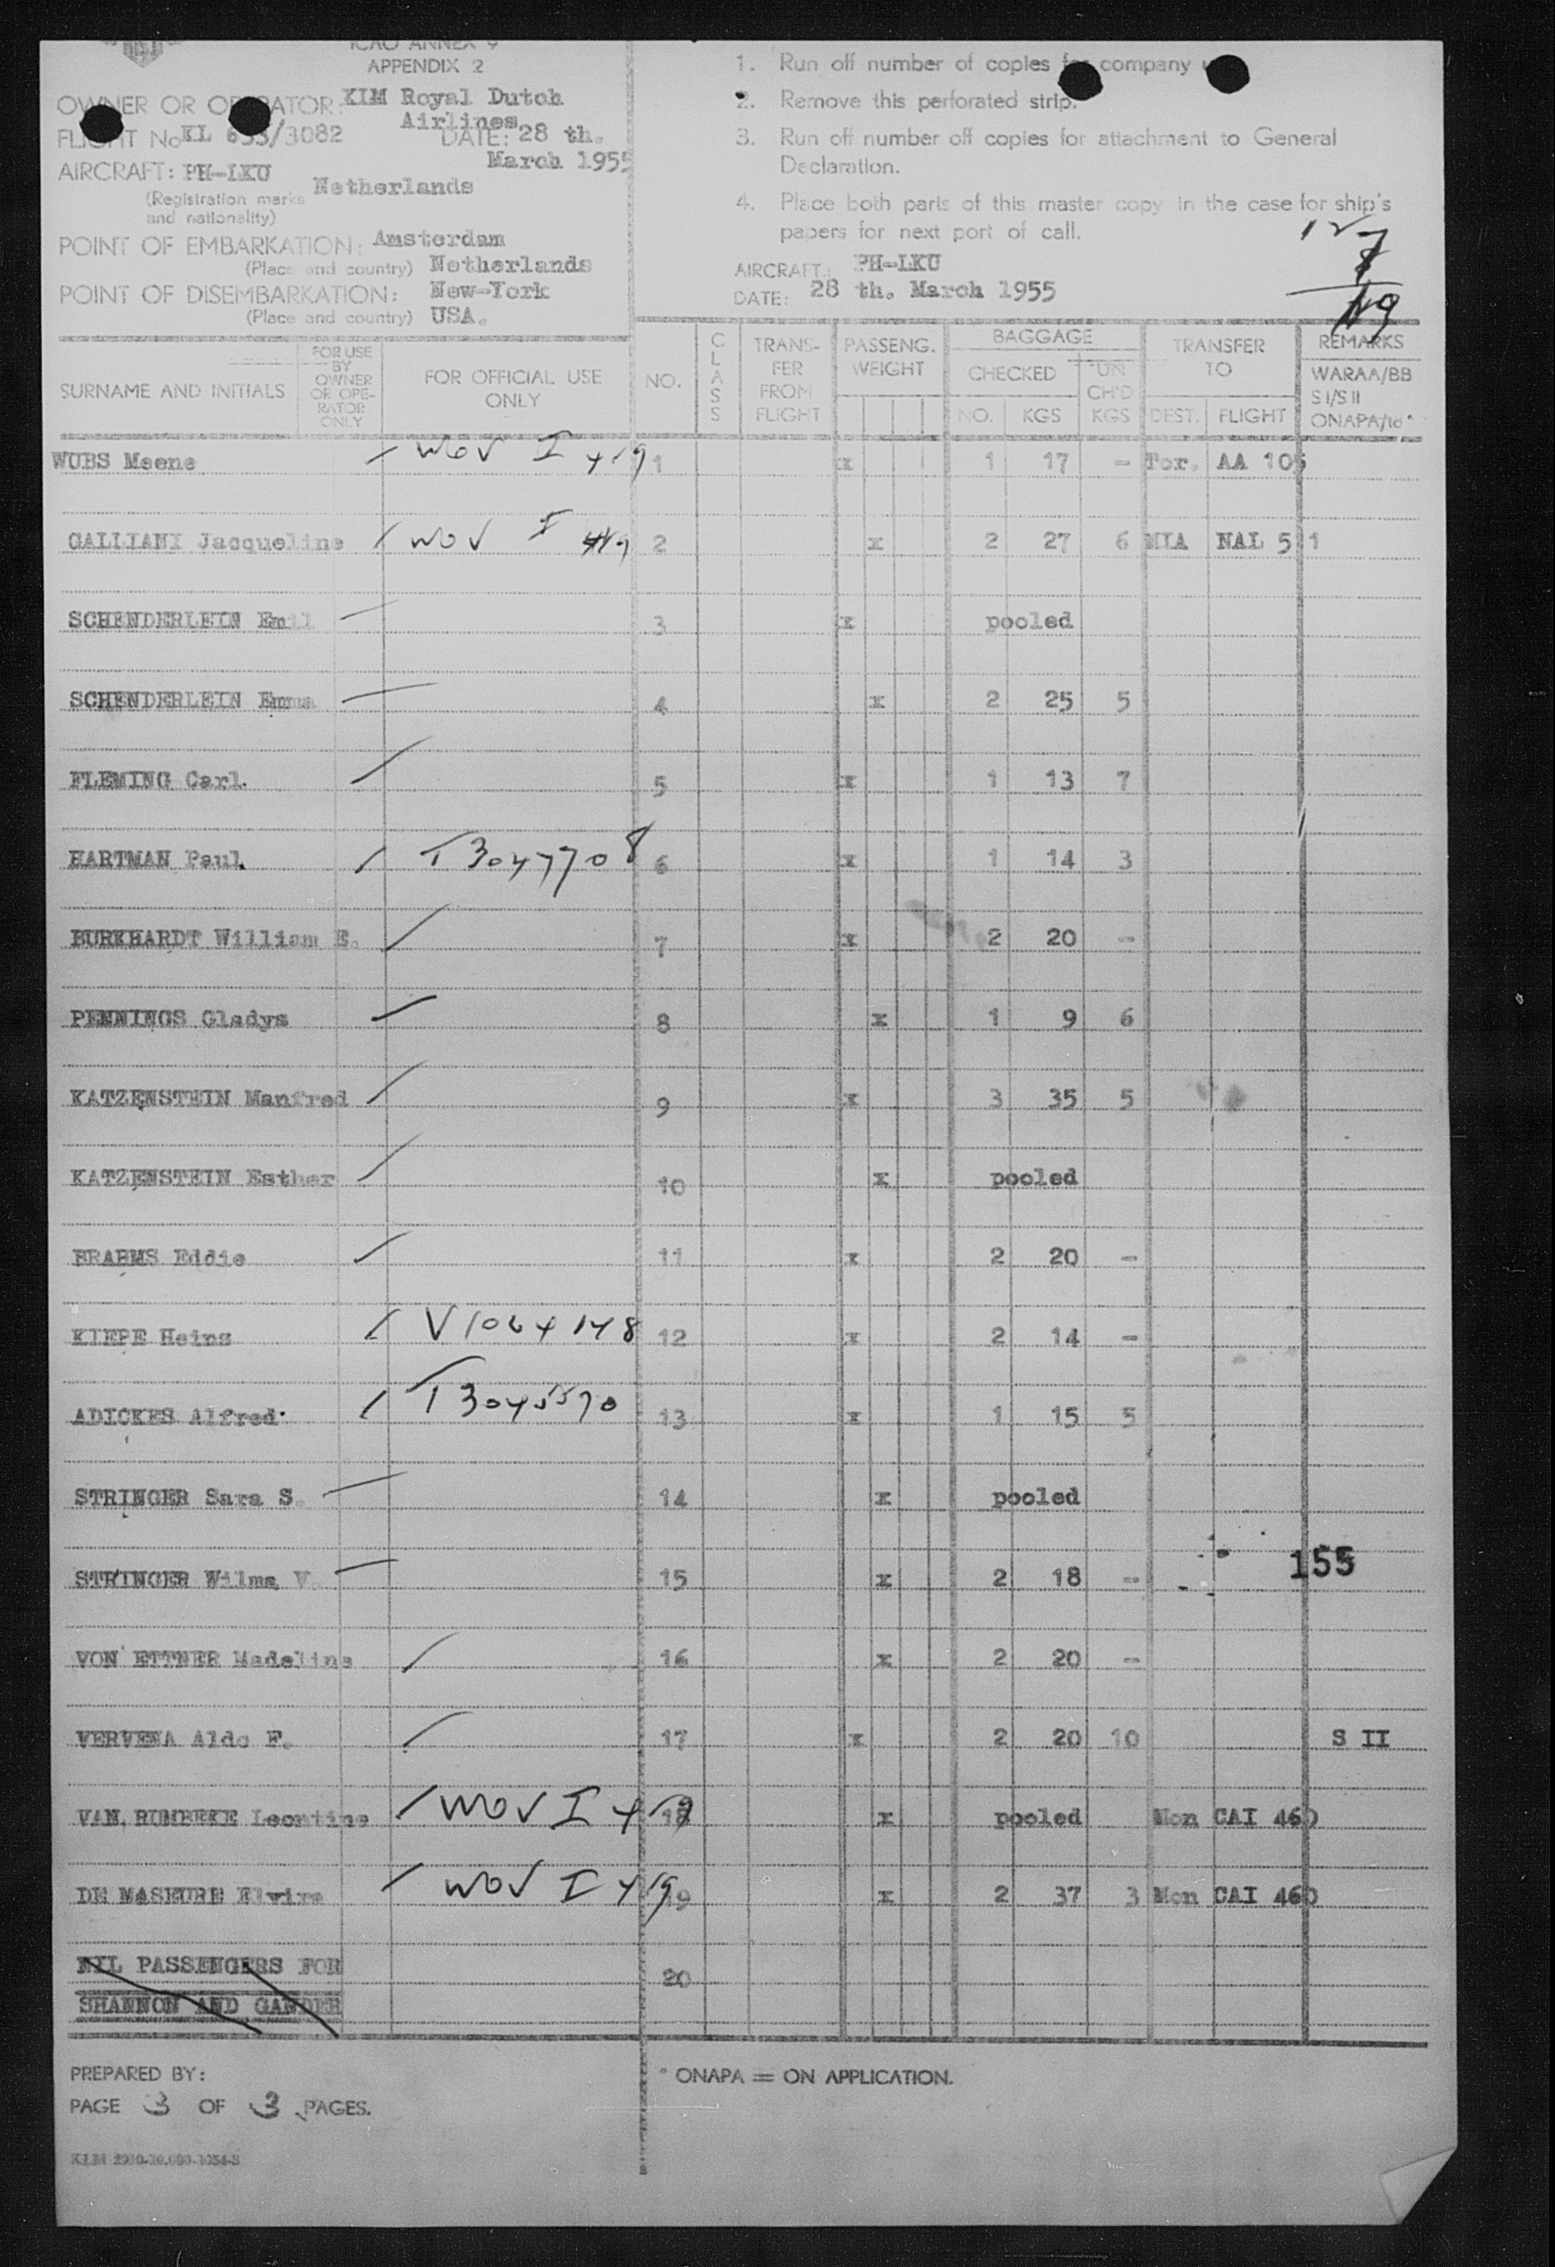 ICAO ANNEX 9
APPENDIX 2
OWNER OR OPERATOR: KLM Royal Dutch
Airlines
FLIGHT No KL 633/3082 DATE: 28 th.
March 1955
AIRCRAFT: PH-LKU
(Registration marks Netherlands
and nationality)
POINT OF EMBARKATION: Amsterdam
(Place and country) Netherlands
POINT OF DISEMBARKATION: New-York
(Place and country) USA.
1. Run off number of copies for company
2. Remove this perforated strip.
3. Run off number off copies for attachment to General
Declaration.
4. Place both parts of this master copy in the case for ship's
papers for next port of call.
AIRCRAFT: PH-LKU
DATE: 28 th. March 1955
SURNAME AND INITIALS FOR USE BY OWNER OR OPE-RATOR ONLY FOR OFFICIAL USE ONLY NO. CLASS TRANS-FER FROM FLIGHT PASSENG. WEIGHT BAGGAGE CHECKED NO. KGS UN CH'D KGS TRANSFER TO DEST. FLIGHT REMARKS WARAA/BB S I/S II ONAPA/to*
WUBS Meene WOV I 419 1 x 1 17 - Tor. AA 105
GALLIANI Jacqueline WOV I 2 x 2 27 6 MIA NAL 5 1
SCHENDERLEIN Emil 3 x pooled
SCHENDERLEIN Emma 4 x 2 25 5
FLEMING Carl. 5 x 1 13 7
HARTMAN Paul. T3047708 6 x 1 14 3
BURKHARDT William E. 7 x 2 20 -
PENNINGS Gladys 8 x 1 9 6
KATZENSTEIN Manfred 9 x 3 35 5
KATZENSTEIN Esther 10 x pooled
BRAHMS Eddie 11 x 2 20 -
KIEPE Heinz V1064148 12 x 2 14 -
ADICKES Alfred T3045570 13 x 1 15 5
STRINGER Sara S. 14 x pooled
155
STRINGER Wilma V. 15 x 2 18 -
VON ETTNER Madeline 16 x 2 20 -
VERVENA Aldo F. 17 x 2 20 10 S II
VAN RUMBEKE Leontine WOV I 419 18 x pooled Mon CAI 460
DE MASEURE Elvire WOV I 419 19 x 2 37 3 Mon CAI 460
NIL PASSENGERS FOR 20
SHANNON AND GANDER
PREPARED BY:
* ONAPA = ON APPLICATION.
PAGE 3 OF 3 PAGES.